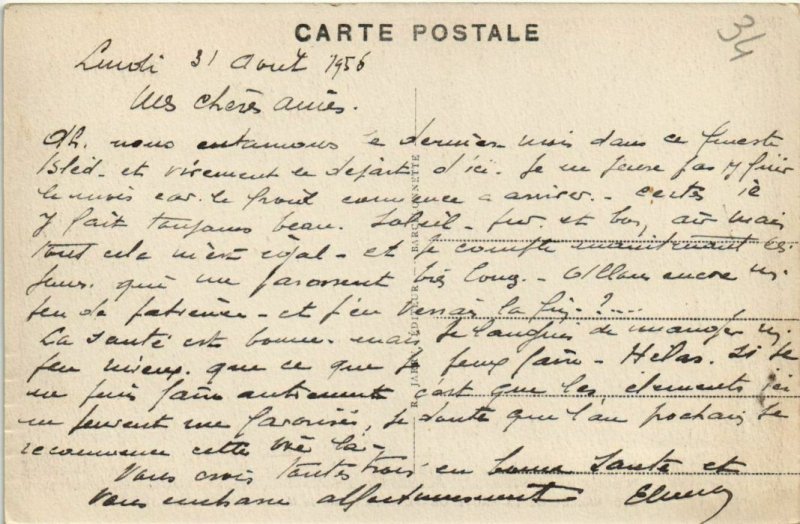 CARTE POSTALE
34
Lundi 31 Aout 1956
Mes chères amies.
Oh. nous entamons le dernier mois dans ce funeste
Bled - et vivement le départ d'ici. Je ne pense pas y finir
le mois car le froid commence a arriver. - certes ic
y fait toujours beau. Soleil - et bas, ah mais
tout cela m'est égal - et je compte maintenant ces
jours. qui me paraissent très longs - Allons encore un
peu de patience - et j'en verrai la fin - ?....
La santé est bonne. mais je languis de manger un
peu mieux. que ce que je peux faire - Hélas. Si je
ne puis faire autrement c'est que les elements ici
ne peuvent me favoriser, je doute que l'an prochain je
recommence cette vie là -
Vous crois toutes trois en bonne santé et
Vous embrasse affectueusement
BARCELONNETTE